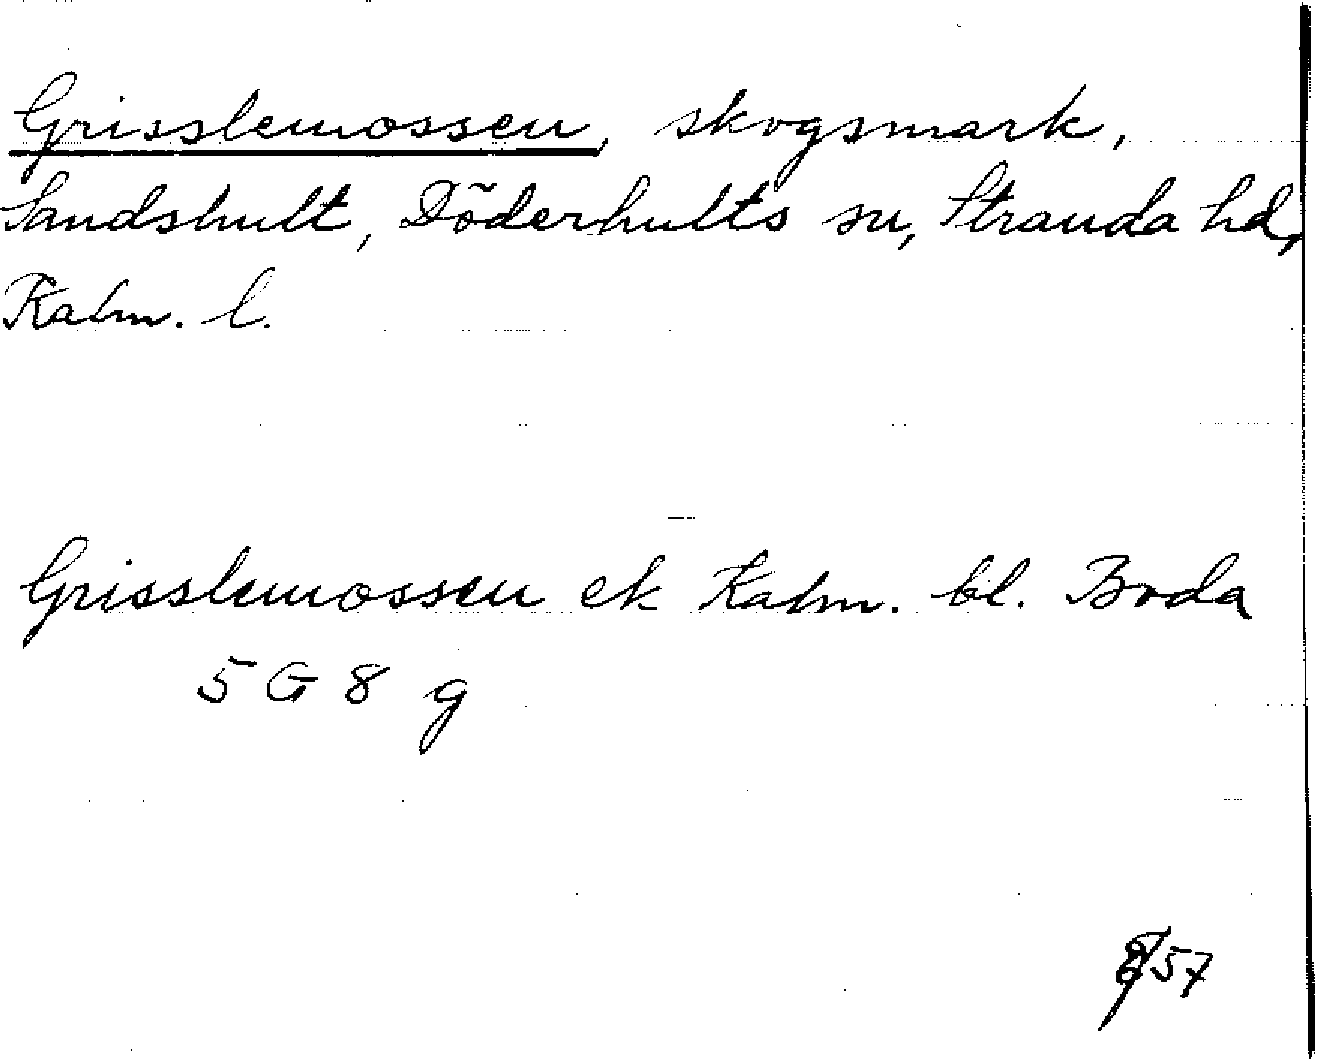 Grisslemossen, skogsmark,
Sandshult, Döderhults sn, Stranda hd,
Kalm. l.
Grisslemossen ek Kalm. bl. Boda
5 G 8 g
57